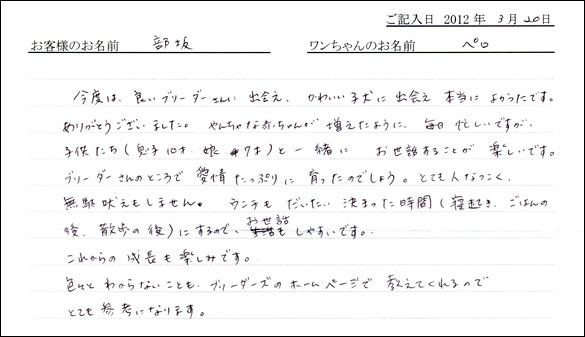 ご記入日 2012 年 3 月 20 日
お客様のお名前 部坂 ワンちゃんのお名前 ペロ
今度は、良いブリーダーさんに出会え、かわいい子犬に出会え 本当に よかったです。
ありがとうございました。 やんちゃな赤ちゃんが 増えたように、毎日 忙しいですが、
子供たち(息子10才、娘 7才)と一緒に お世話することが 楽しいです。
ブリーダーさんのところで 愛情たっぷりに 育ったのでしょう。とても人なつこく、
無駄吠えもしません。 ウンチも だいたい 決まった時間(寝起き、ごはんの
後、散歩の後)にするので、お世話も しやすいです。
これからの 成長も楽しみです。
色々と わからないことも、ブリーダーズのホームページで 教えてくれるので
とても参考になります。